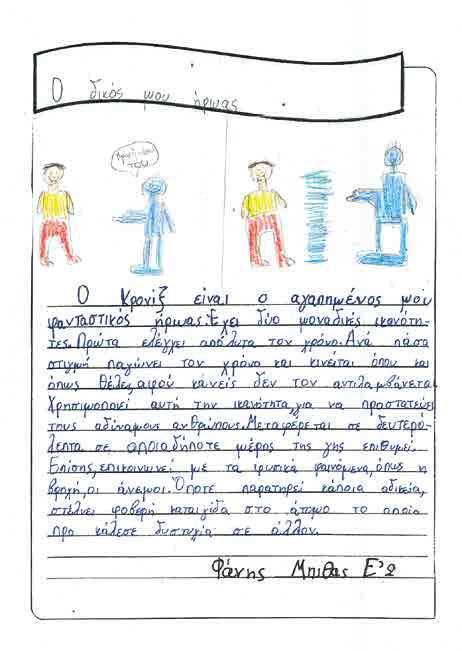 Ο δικός μου ήρωας
Ο Κρονίξ είναι ο αγαπημένος μου
φανταστικός ήρωας. Έχει δύο μοναδικές ικανότη-
τες. Πρώτα ελέγχει απόλυτα τον χρόνο. Ανά πάσα
στιγμή παγώνει τον χρόνο και κινείται όπου και
όπως θέλει, αφού κανείς δεν τον αντιλαμβάνεται
Χρησιμοποιεί αυτή την ικανότητα, για να προστατεύει
τους αδύναμους ανθρώπους. Μεταφέρεται σε δευτερό-
λεπτα σε οποιαδήποτε μέρος της γης επιθυμεί.
Επίσης, επικοινωνεί με τα φυσικά φαινόμενα, όπως η
βροχή, οι άνεμοι. Όποτε παρατηρεί κάποια αδικεία,
στέλνει φοβερή καταιγίδα στο άτομο το οποίο
προ κάλεσε δυστυχία σε άλλον.
Φάνης Μπίθας Ε'2